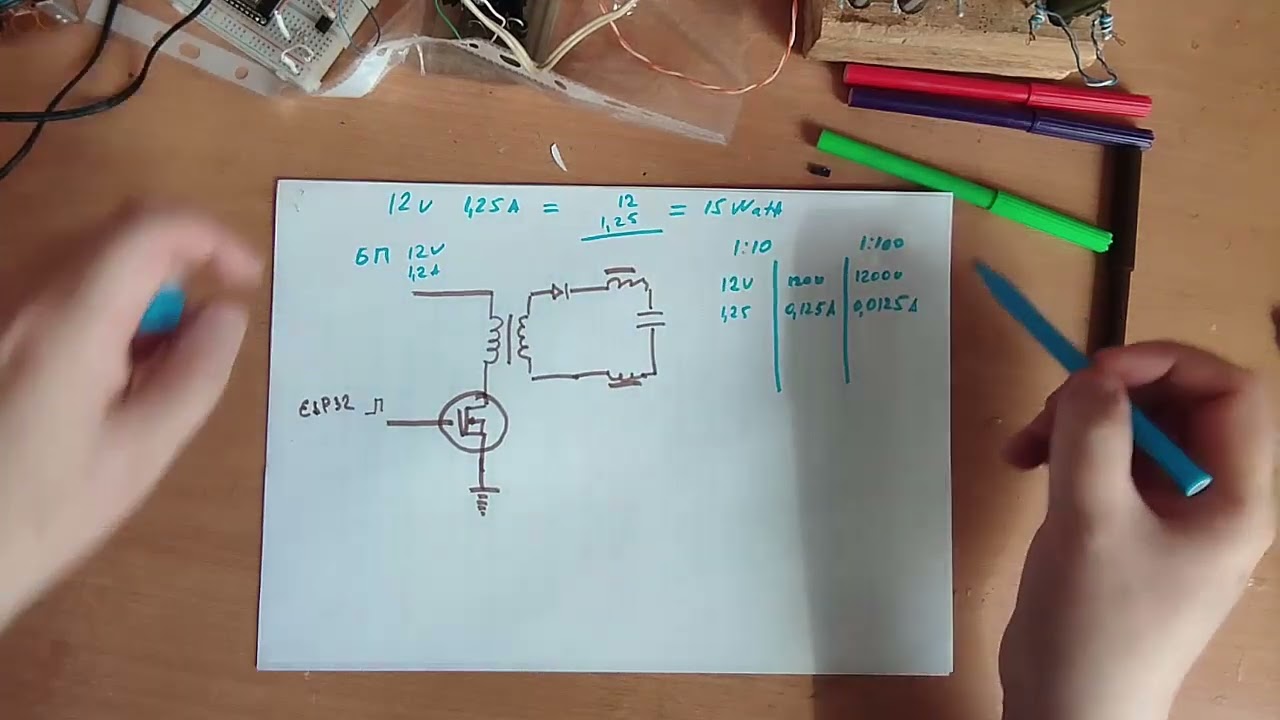 12v 1,25A = 12 = 15 Watt
1,25
БП 12V
1,2A
1:10 1:100
12V 120v 1200v
1,25 0,125A 0,0125A
ESP32